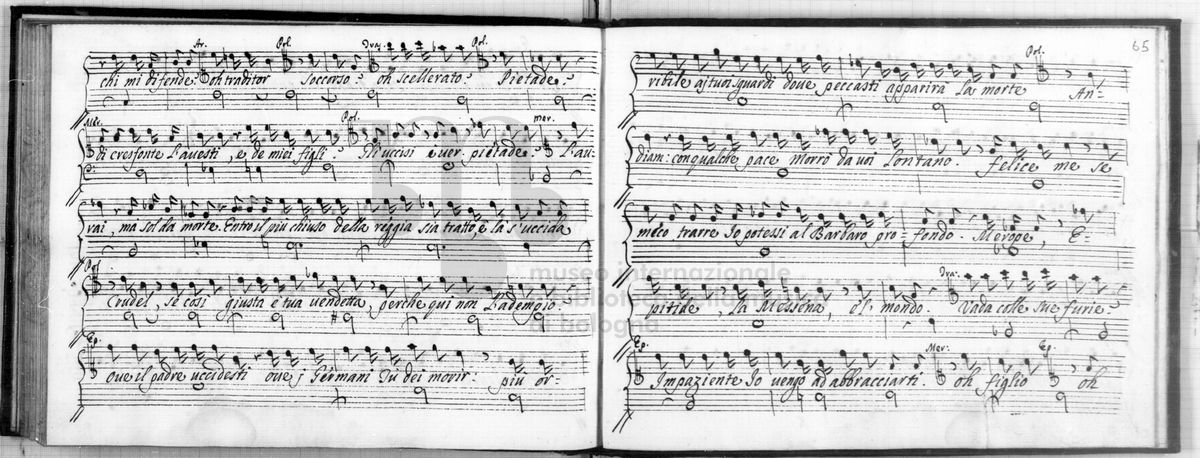 Ar. Pol. Tra. Pol.
chi mi difende? oh traditor Soccorso? oh scellerato? Pietade?
Mer. Pol. mer.
di cresfonte L'avesti, e de miei figli? Gli uccisi è ver pietade? L'au-
rai, ma sol da morte. Entro il più chiuso della reggia sia tratto, e la s'uccida
Pol.
Crudel, se così giusta e tua vendetta, perche qui non L'adempio?
Ep.
ove il padre uccidesti ove i Germani Tu dei morir: piu or-
65
Pol.
ribile a' tuoi sguardi dove peccasti apparirà La morte An-
diam: con qualche pace morrò da voi Lontano. Felice me se
meco trarre Io potessi al Barbaro profondo. Merope, E-
Tra.
pitide, La Messena, e'l mondo. Vada colle sue furie:
Ep. Mer: Ep.
Impaziente Io vengo ad abbracciarti. oh figlio oh
museo internazionale
e biblioteca della musica
di bologna